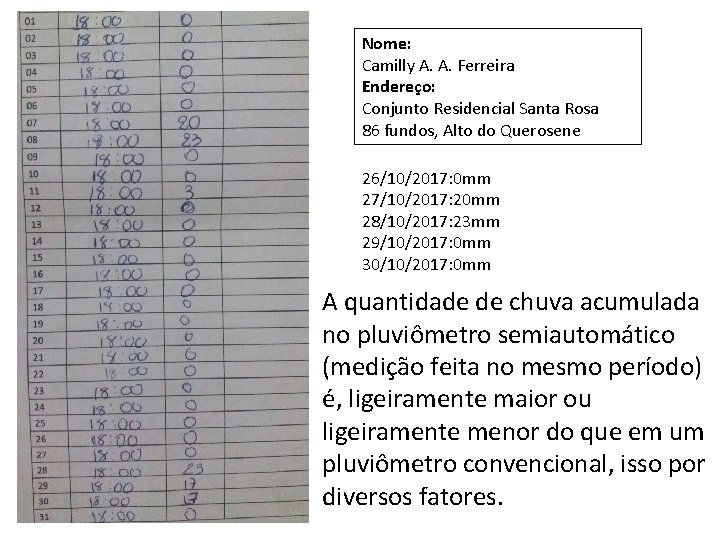 01 18:00 0
02 18:00 0
03 18:00 0
04 18:00 0
05 18:00 0
06 18:00 0
07 18:00 20
08 18:00 23
09 18:00 0
10 18:00 0
11 18:00 3
12 18:00 0
13 18:00 0
14 18:00 0
15 18:00 0
16 18:00 0
17 18:00 0
18 18:00 0
19 18:00 0
20 18:00 0
21 18:00 0
22 18:00 0
23 18:00 0
24 18:00 0
25 18:00 0
26 18:00 0
27 18:00 0
28 18:00 23
29 18:00 17
30 18:00 17
31 18:00 0
Nome:
Camilly A. A. Ferreira
Endereço:
Conjunto Residencial Santa Rosa
86 fundos, Alto do Querosene
26/10/2017:0mm
27/10/2017:20mm
28/10/2017:23mm
29/10/2017:0mm
30/10/2017:0mm
A quantidade de chuva acumulada
no pluviômetro semiautomático
(medição feita no mesmo período)
é, ligeiramente maior ou
ligeiramente menor do que em um
pluviômetro convencional, isso por
diversos fatores.